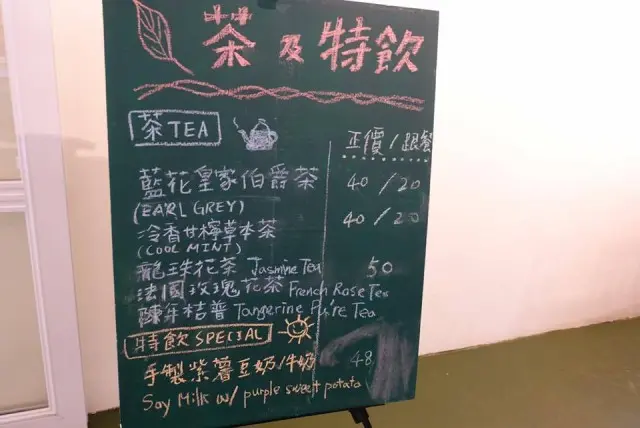 茶及特飲
茶 TEA
正價/跟餐
藍花皇家伯爵茶 40/20
(EARL GREY)
冷香甘檸草本茶 40/20
(COOL MINT)
龍珠花茶 Jasmine Tea 50
法國玫瑰花茶 French Rose Tea
陳年桔普 Tangerine Pu're Tea
特飲 SPECIAL
手製紫薯豆奶/牛奶 48
Soy Milk w/ purple sweet potato